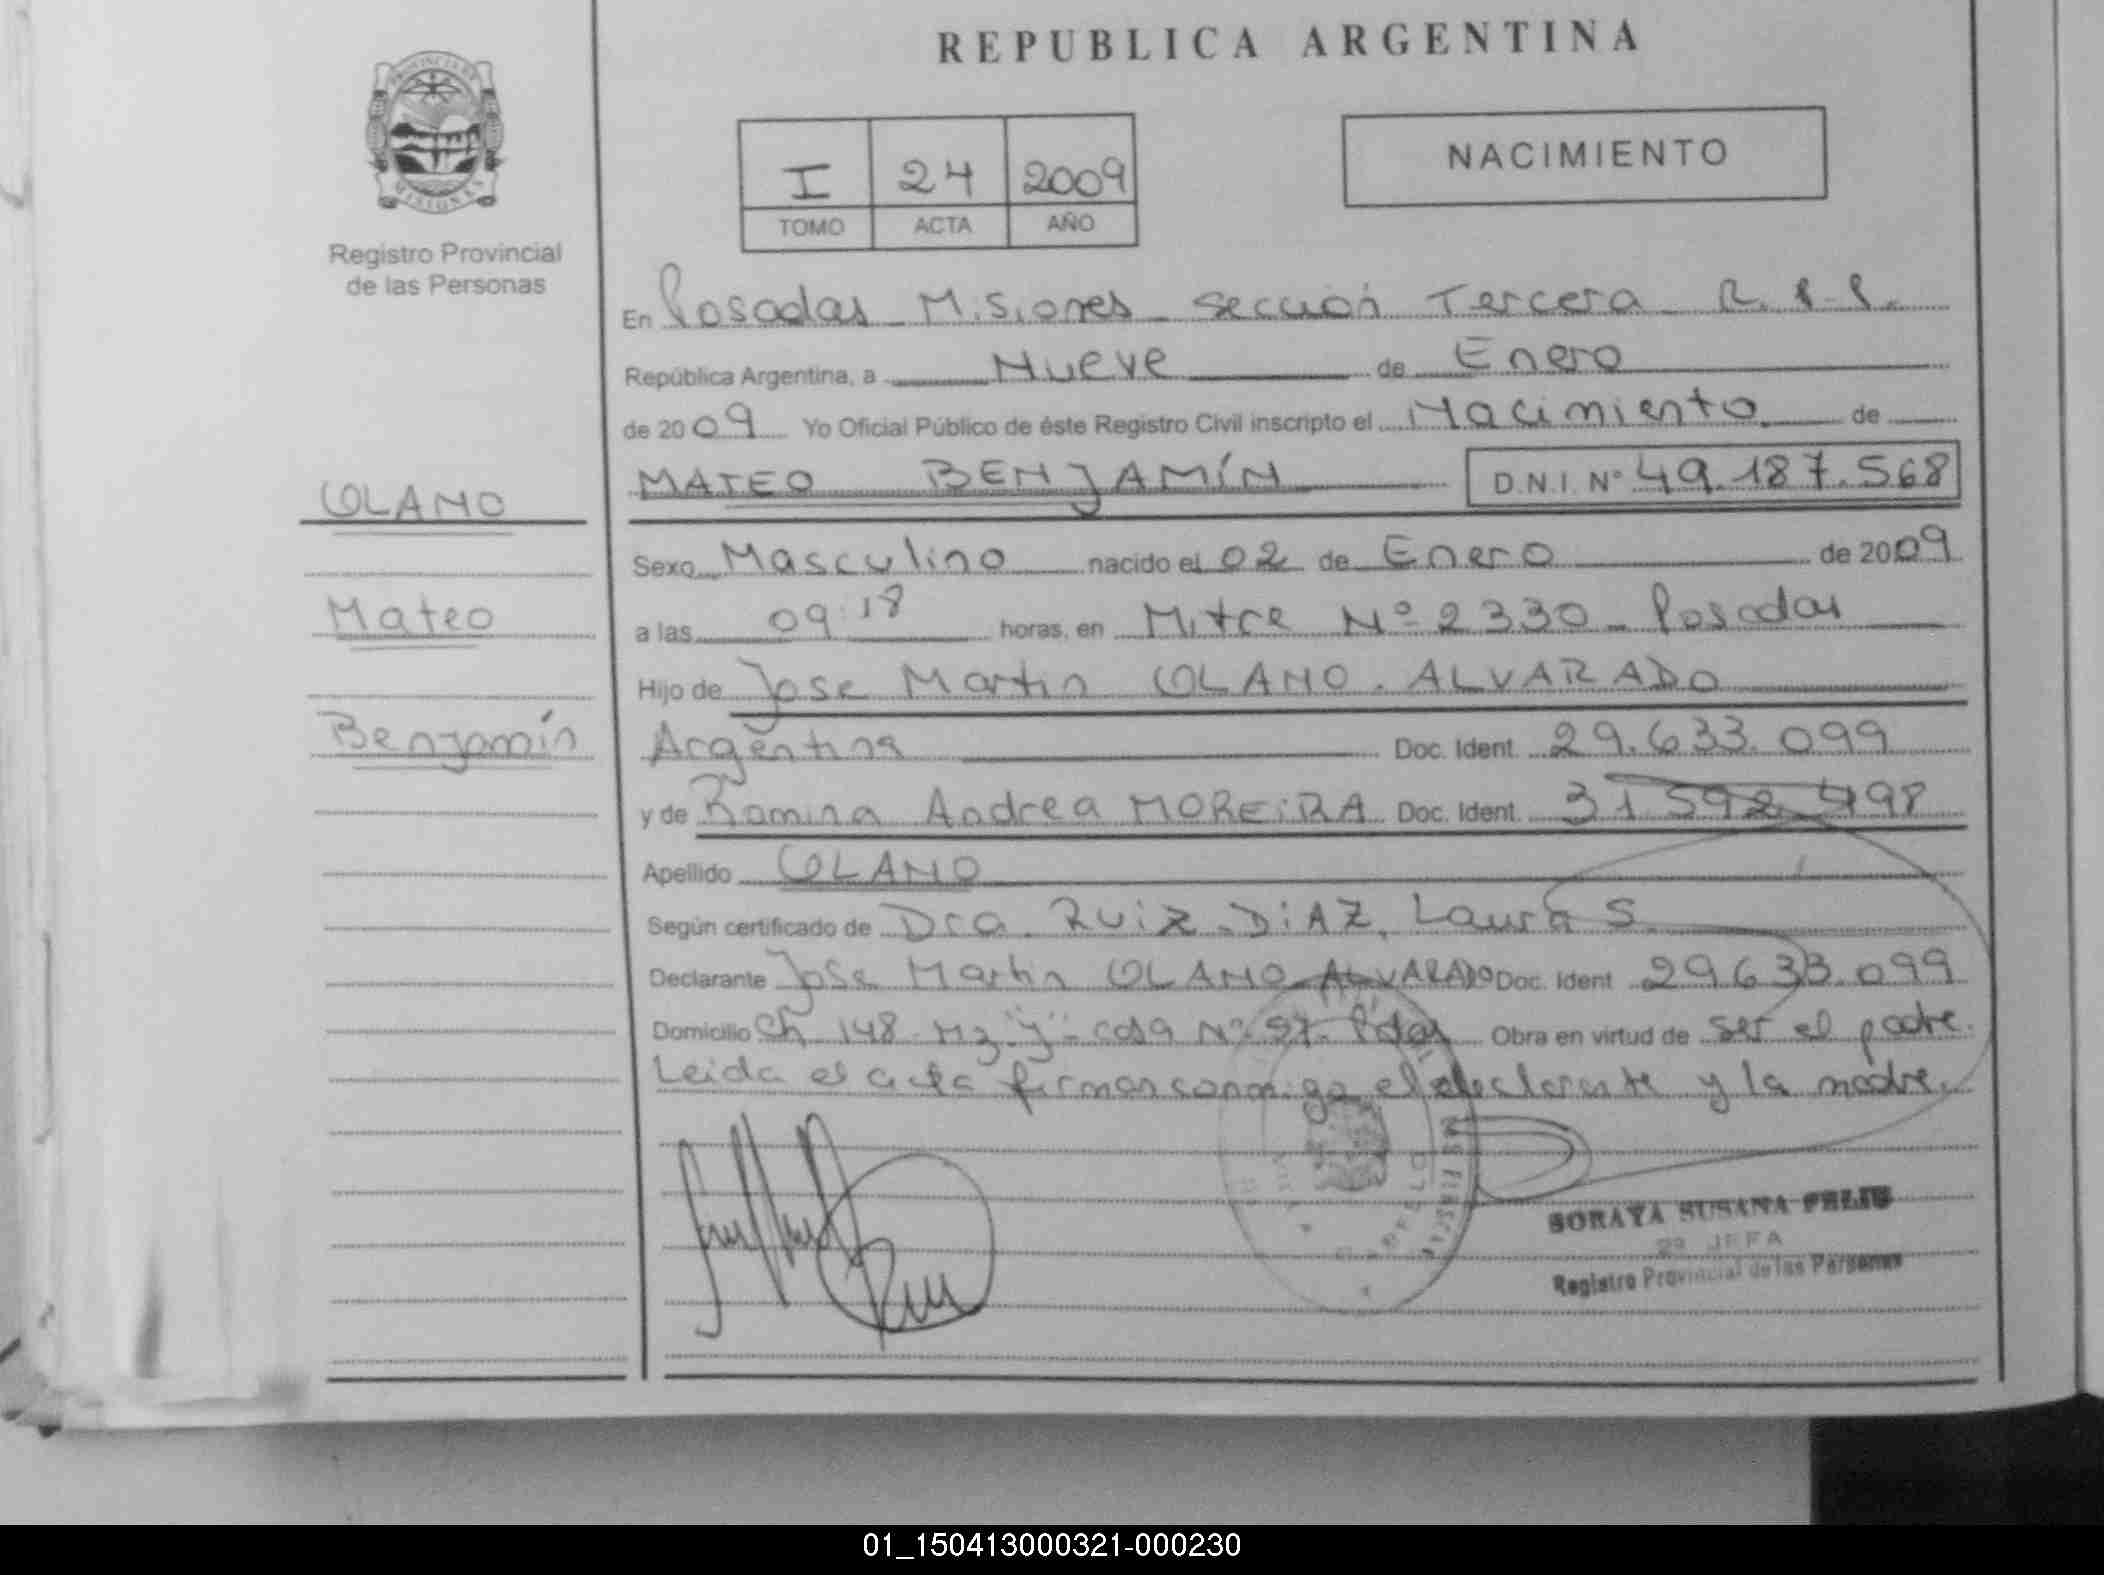 REPUBLICA ARGENTINA
PROVINCIA DE
MISIONES
Registro Provincial
de las Personas
I 24 2009
TOMO ACTA AÑO
NACIMIENTO
En Posadas Misiones Sección Tercera R.P.P.
República Argentina, a Nueve de Enero
de 2009 Yo Oficial Público de éste Registro Civil inscripto el Nacimiento de
MATEO BENJAMÍN D.N.I. Nº 49.187.568
OLANO
Mateo
Benjamín
Sexo Masculino nacido el 02 de Enero de 2009
a las 09:18 horas, en Mitre Nº 2330 - Posadas
Hijo de Jose Martin OLANO. ALVARADO
Argentina Doc. Ident. 29.633.099
y de Romina Andrea MOREIRA Doc. Ident. 31.592.498
Apellido OLANO
Según certificado de Dra. RUIZ - DIAZ, Laura S.
Declarante Jose Martin OLANO - ALVARADO Doc. Ident 29.633.099
Domicilio Ch 148 - Mz "J" - casa Nº 97 - Pdas Obra en virtud de ser el padre.
Leida el acta firman conmigo el declarante y la madre.
SORAYA SUSANA FELIU
2º JEFA
Registro Provincial de las Personas
01_150413000321-000230